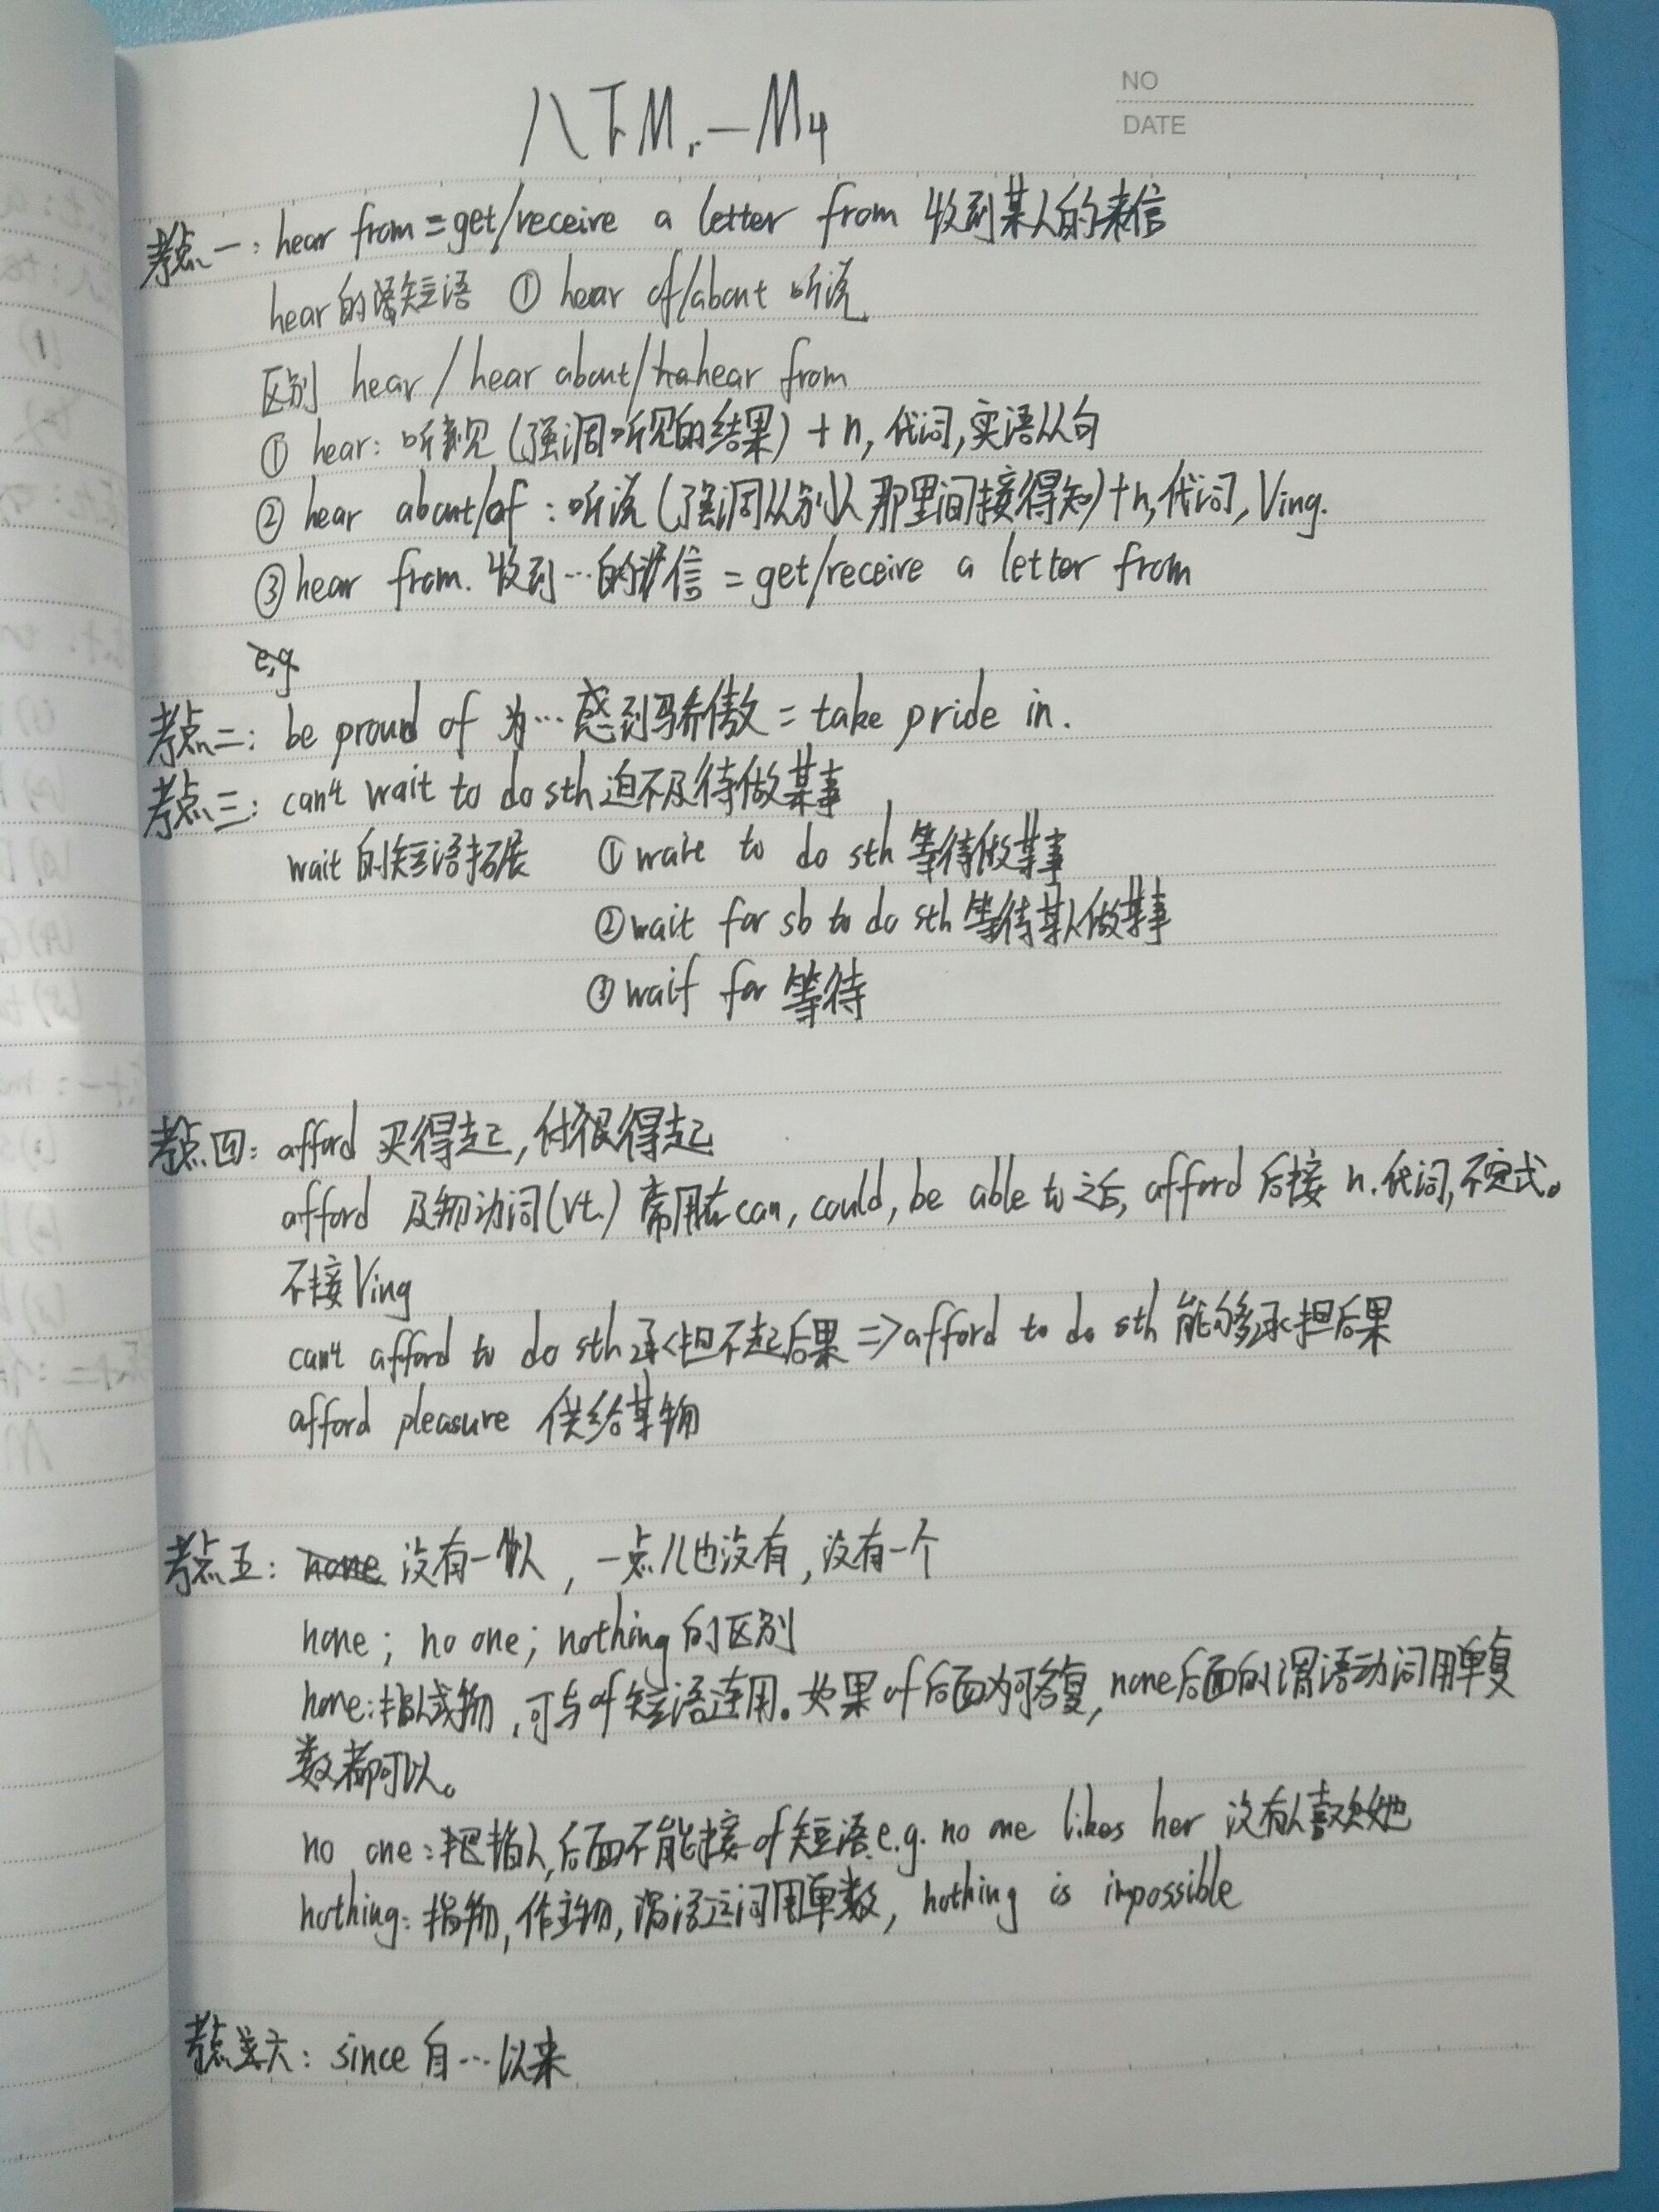 NO
DATE
八下M1—M4
考点一：hear from = get/receive a letter from 收到某人的来信
hear的短语 ① hear of/about 听说
区别 hear / hear about / hear from
① hear: 听见 (强调听见的结果) + n, 代词, 宾语从句
② hear about/of : 听说 (强调从别人那里间接得知) + n, 代词, Ving.
③ hear from. 收到…的信 = get/receive a letter from
e.g
考点二：be proud of 为…感到骄傲 = take pride in.
考点三：can't wait to do sth 迫不及待做某事
wait 的短语拓展 ① wait to do sth 等待做某事
② wait for sb to do sth 等待某人做某事
③ wait for 等待
考点四：afford 买得起, 付得起
afford 及物动词(vt.) 常用在can, could, be able to 之后, afford 后接 n. 代词, 不定式。
不接Ving
can't afford to do sth 承担不起后果 => afford to do sth 能够承担后果
afford pleasure 供给某物
考点五：none 没有一个人, 一点儿也没有, 没有一个
none; no one; nothing 的区别
none: 指人或物, 可与of短语连用。如果of后面为可名复, none后面的谓语动词用单复
数都可以。
no one: 指人, 后面不能接of短语 e.g. no one likes her 没有人喜欢她
nothing: 指物, 作主物, 谓语动词用单数, nothing is impossible
考点六：since 自…以来